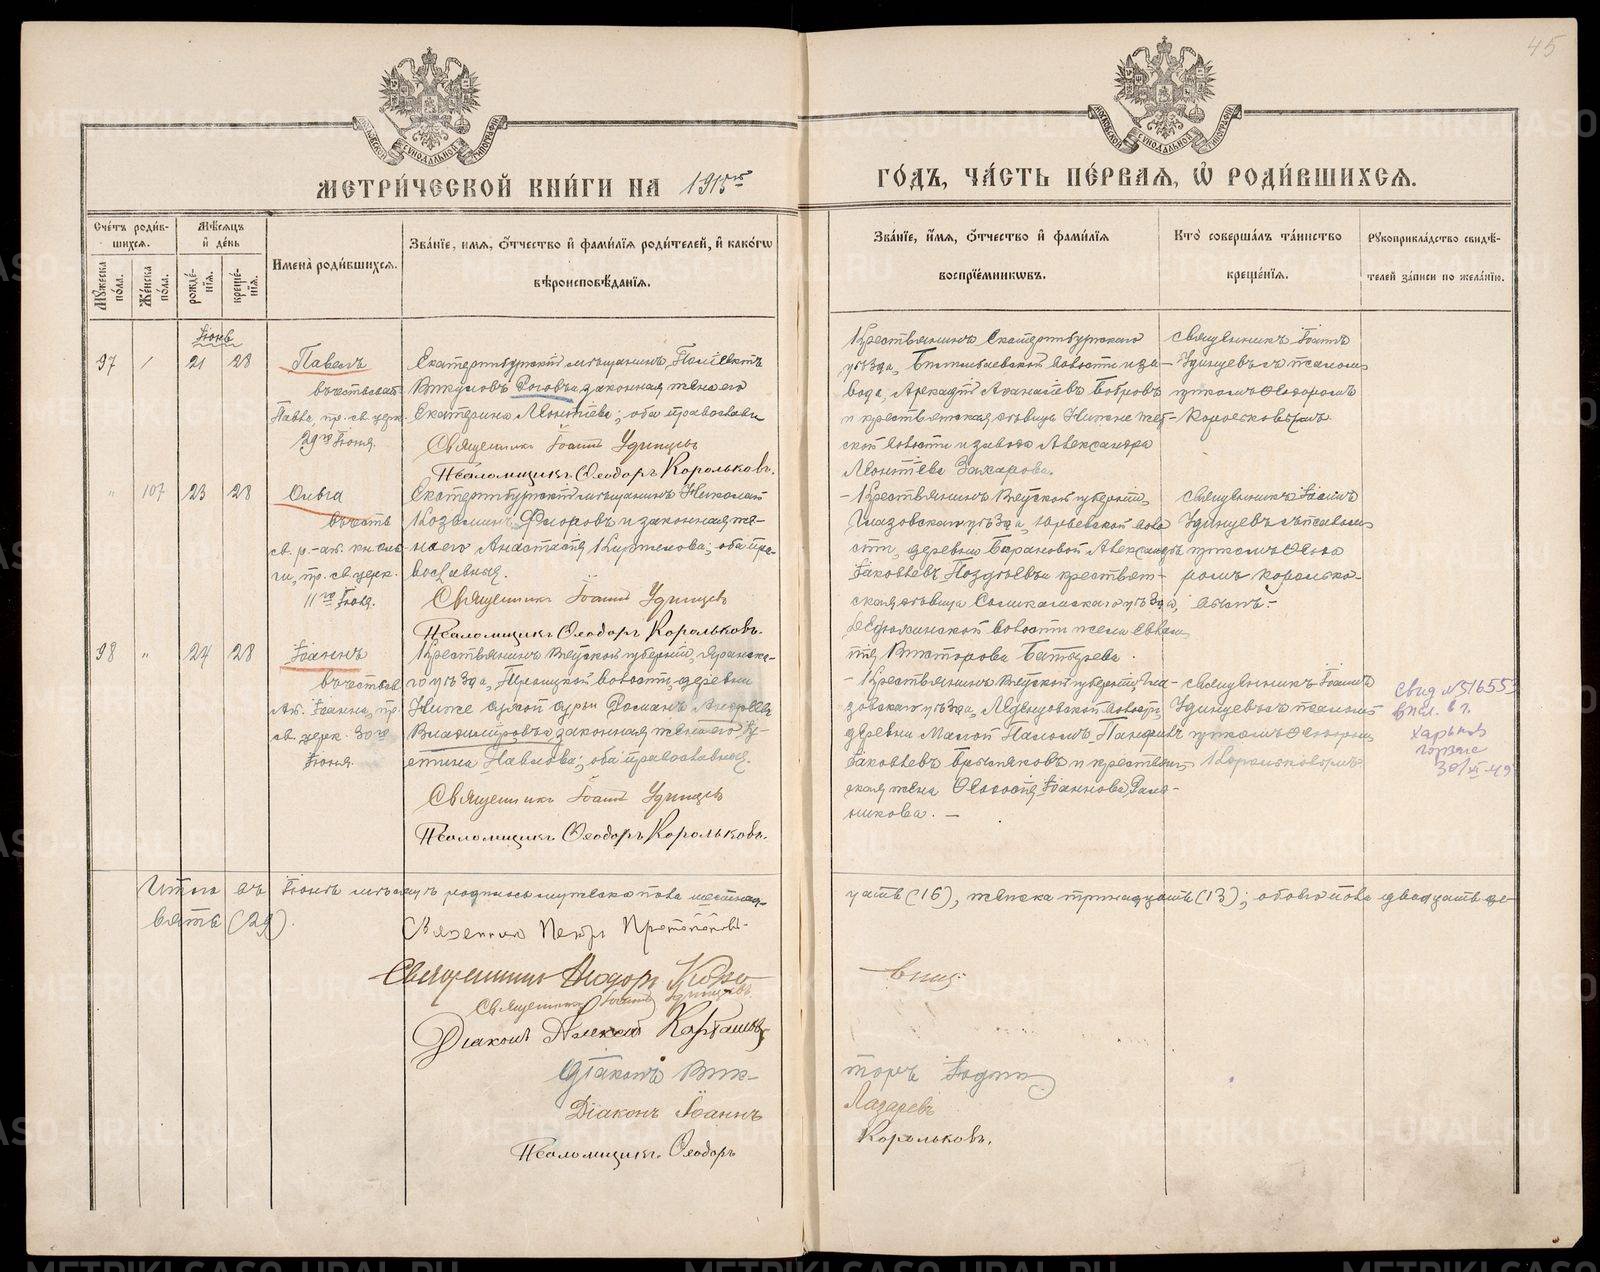 45
МОСКОВСКОЙ СѴНОДАЛЬНОЙ ТИПОГРАФІИ
МОСКОВСКОЙ СѴНОДАЛЬНОЙ ТИПОГРАФІИ
МЕТРИ́ЧЕСКОЙ КНИ́ГИ НА 1915
ГО́ДЪ, ЧА́СТЬ ПЕ́РВАЯ, Ѿ РОДИ́ВШИХСЯ.
Сче́тъ роди́в-
шихся.
Му́жеска по́ла.
Же́нска по́ла.
Мѣ́сяцъ
и҆ де́нь
рожде́-
нїя.
креще́-
нїя.
И҆мена̀ роди́вшихся.
Зва́нїе, и҆́мя, ѻ҆́тчество и҆ фами́лїя роди́телей, и҆ како́гѡ
вѣроисповѣ́данїя.
Зва́нїе, и҆́мя, ѻ҆́тчество и҆ фами́лїя
воспрїе́мникѡвъ.
Кто̀ соверша́лъ та́инство
креще́нїя.
Рꙋкоприкла́дство свидѣ́-
телей за́писи по жела́нїю.
Іюнь
97 21 28 Павелъ
въ честь ап.
Павла, пр. св. церк.
29го Іюня.
Екатеринбургскій мѣщанинъ
Роговъ и законная жена его
Екатерина Леонтіева; оба православн.
Священникъ Іоаннъ Удинцевъ
Псаломщикъ Ѳеодоръ Корольковъ.
Крестьянинъ Екатеринбургскаго
уѣзда, Билимбаевской волости и за-
вода, Аркадій Аѳанасіевъ Бобровъ
и крестьянская дѣвица Нижне
ской волости и завода Александра
Леонтіева Захарова.
Священникъ Іоаннъ
Удинцевъ съ псалом-
щикомъ Ѳеодоромъ
Корольковымъ
" 107 23 28 Ольга
въ честь
св. р.-ап. кн. Оль-
ги, пр. св. церк.
11го Іюля.
Екатеринбургскій мѣщанинъ Николай
Козьминъ Флоровъ и законная же-
на его Анастасія Кириллова; оба пра-
вославные.
Священникъ Іоаннъ Удинцевъ
Псаломщикъ Ѳеодоръ Корольковъ.
- Крестьянинъ Вятской губерніи,
Глазовскаго уѣзда, Юрьевской воло
сти, деревни Барановой Александръ
Іаковлевъ Поздѣевъ и крестьян-
ская дѣвица Соликамскаго уѣзда,
Дедюхинской волости и села Евлам
пія Викторова
Священникъ Іоаннъ
Удинцевъ съ псалом
щикомъ Ѳеодо
ромъ Королько-
вымъ.-
98 " 24 28 Іоаннъ
въ честь св.
Ап. Іоанна, пр.
св. церк. 30го
Іюня.
Крестьянинъ Вятской губерніи, Яранска-
го уѣзда, Троицкой волости, деревни
Романъ Андреевъ
Владиміровъ и законная жена его Ху-
стина Павлова; оба православные.
Священникъ Іоаннъ Удинцевъ
Псаломщикъ Ѳеодоръ Корольковъ.
- Крестьянинъ Вятской губерніи Гла-
зовскаго уѣзда, волости,
деревни Малой Панфилъ
Іаковлевъ и крестьян-
ская жена Ѳеодосія Іоаннова
никова. —
Священникъ Іоаннъ
Удинцевъ съ псалом-
щикомъ Ѳеодоромъ
Корольковымъ.
Свид №516553
Харьков
30/VI-49
Итого въ Іюнѣ мѣсяцѣ родилось мужеска пола шестнад-
цать (16), женска тринадцать (13); обоего пола двадцать де-
вять (29).
Священникъ Петръ Протопоповъ.
Священникъ Ѳеодоръ
Священникъ Іоаннъ Удинцевъ
Діаконъ Алексій Карташевъ
Діаконъ Вик-
торъ
Діаконъ Іоаннъ
Лазаревъ
Псаломщикъ Ѳеодоръ
Корольковъ.
METRIKI.GASO-URAL.RU